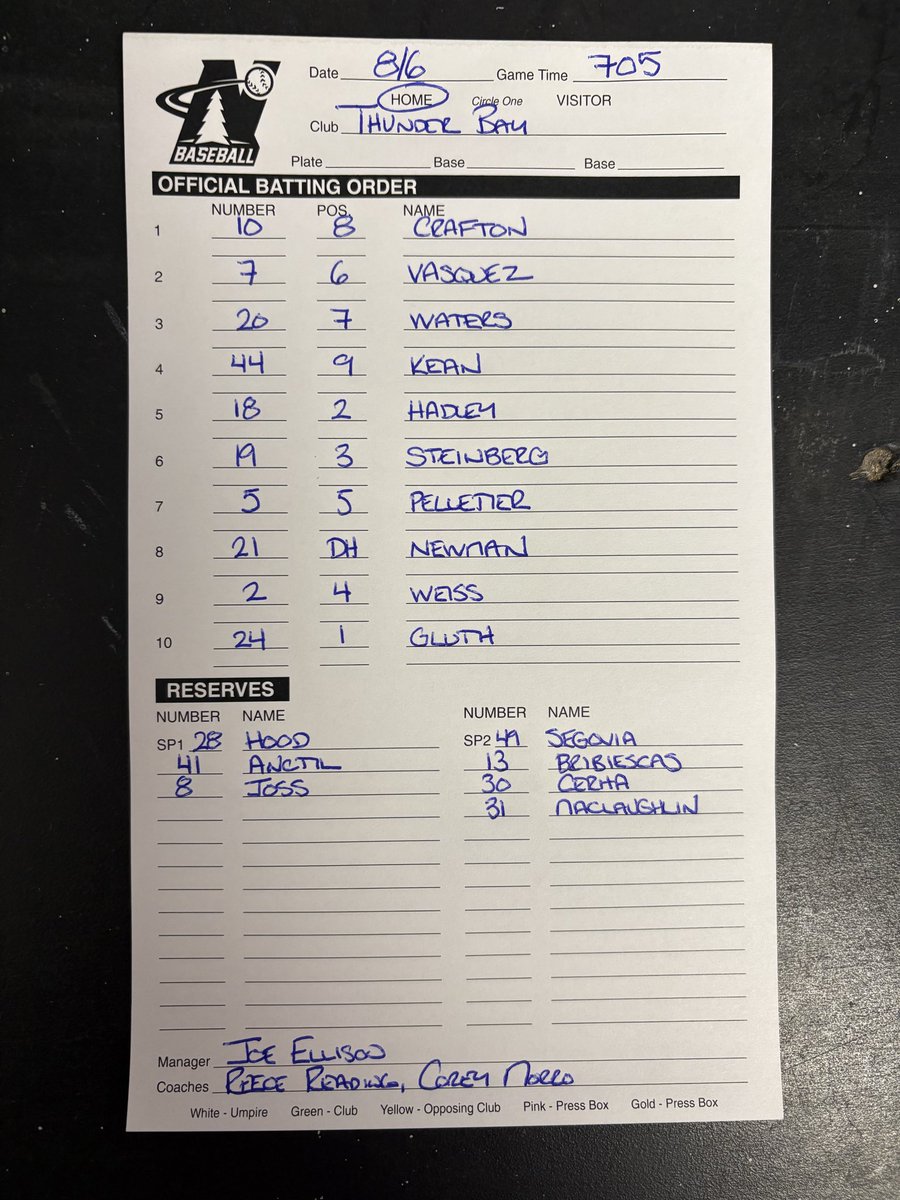 BASEBALL
Date 8/6 Game Time 705
HOME Circle One VISITOR
Club THUNDER BAY
Plate Base Base
OFFICIAL BATTING ORDER
NUMBER POS. NAME
1 10 8 CRAFTON
2 7 6 VASQUEZ
3 20 7 WATERS
4 44 9 KEAN
5 18 2 HADLEY
6 19 3 STEINBERG
7 5 5 PELLETIER
8 21 DH NEWMAN
9 2 4 WEISS
10 24 1 GLUTH
RESERVES
NUMBER NAME NUMBER NAME
SP1 28 HOOD SP2 49 SEGOVIA
41 ANCTIL 13 BRIBIESCAS
8 JOSS 30 CERHA
31 MACLAUGHLIN
Manager JOE ELLISON
Coaches REECE READING, COREY MORRO
White - Umpire Green - Club Yellow - Opposing Club Pink - Press Box Gold - Press Box